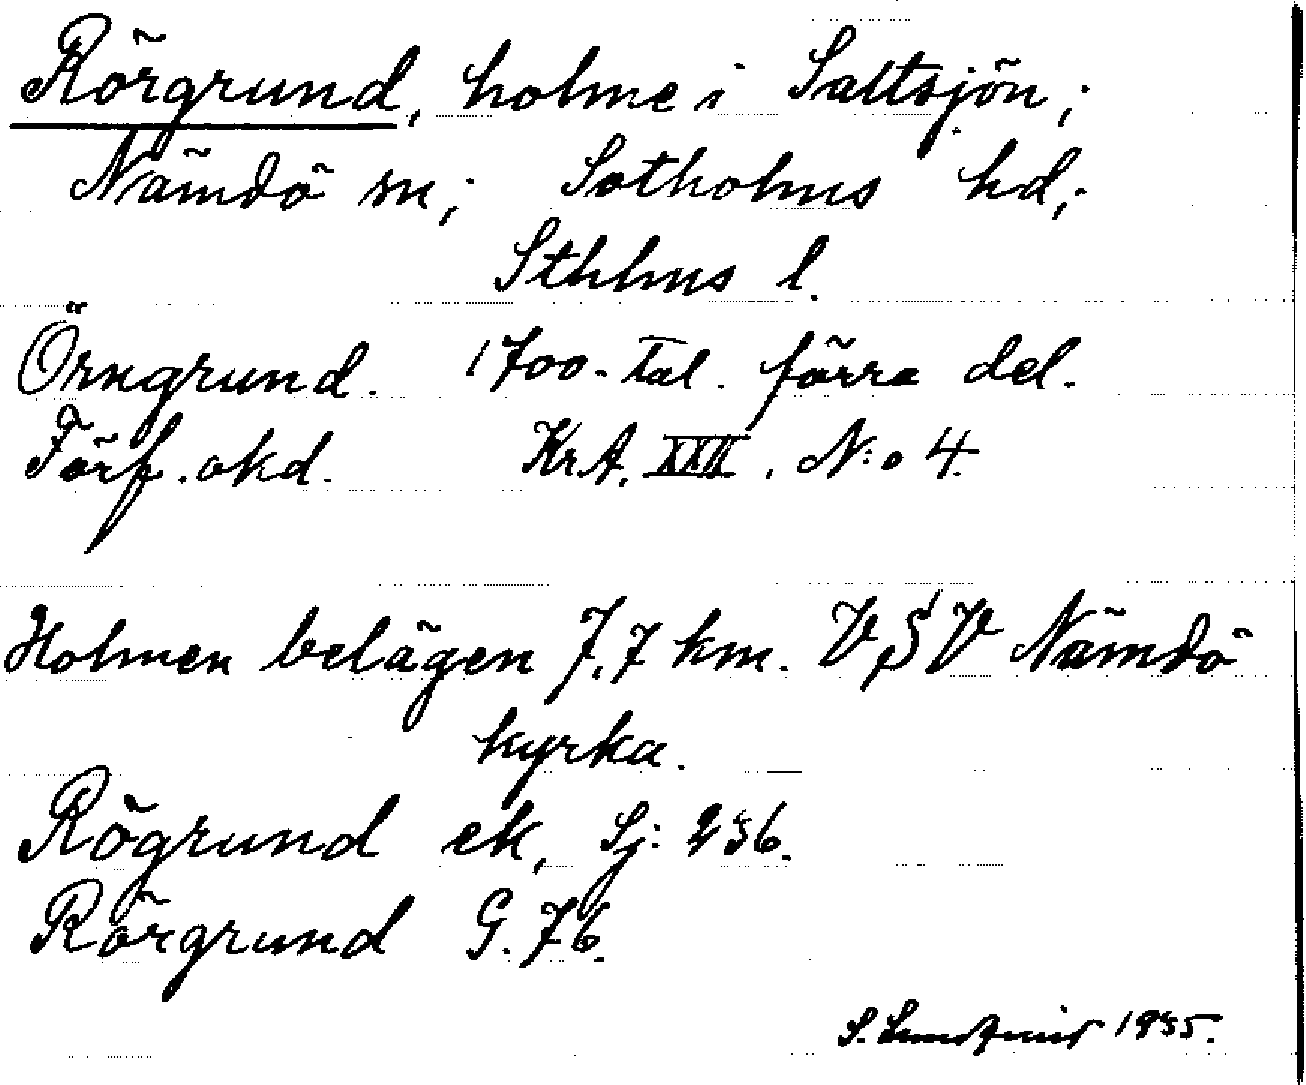 Rörgrund, holme i Saltsjön;
Nämdö sn; Sotholms hd;
Sthlms l.
Örngrund. 1700-tal. förra del.
Förf. okd. KrA. XXII. N:o 4.
Holmen belägen 7,7 km. VSV Nämdö
kyrka.
Rögrund ek, Sj: 236.
Rörgrund G. 76.
S. Lundqvist 1935.